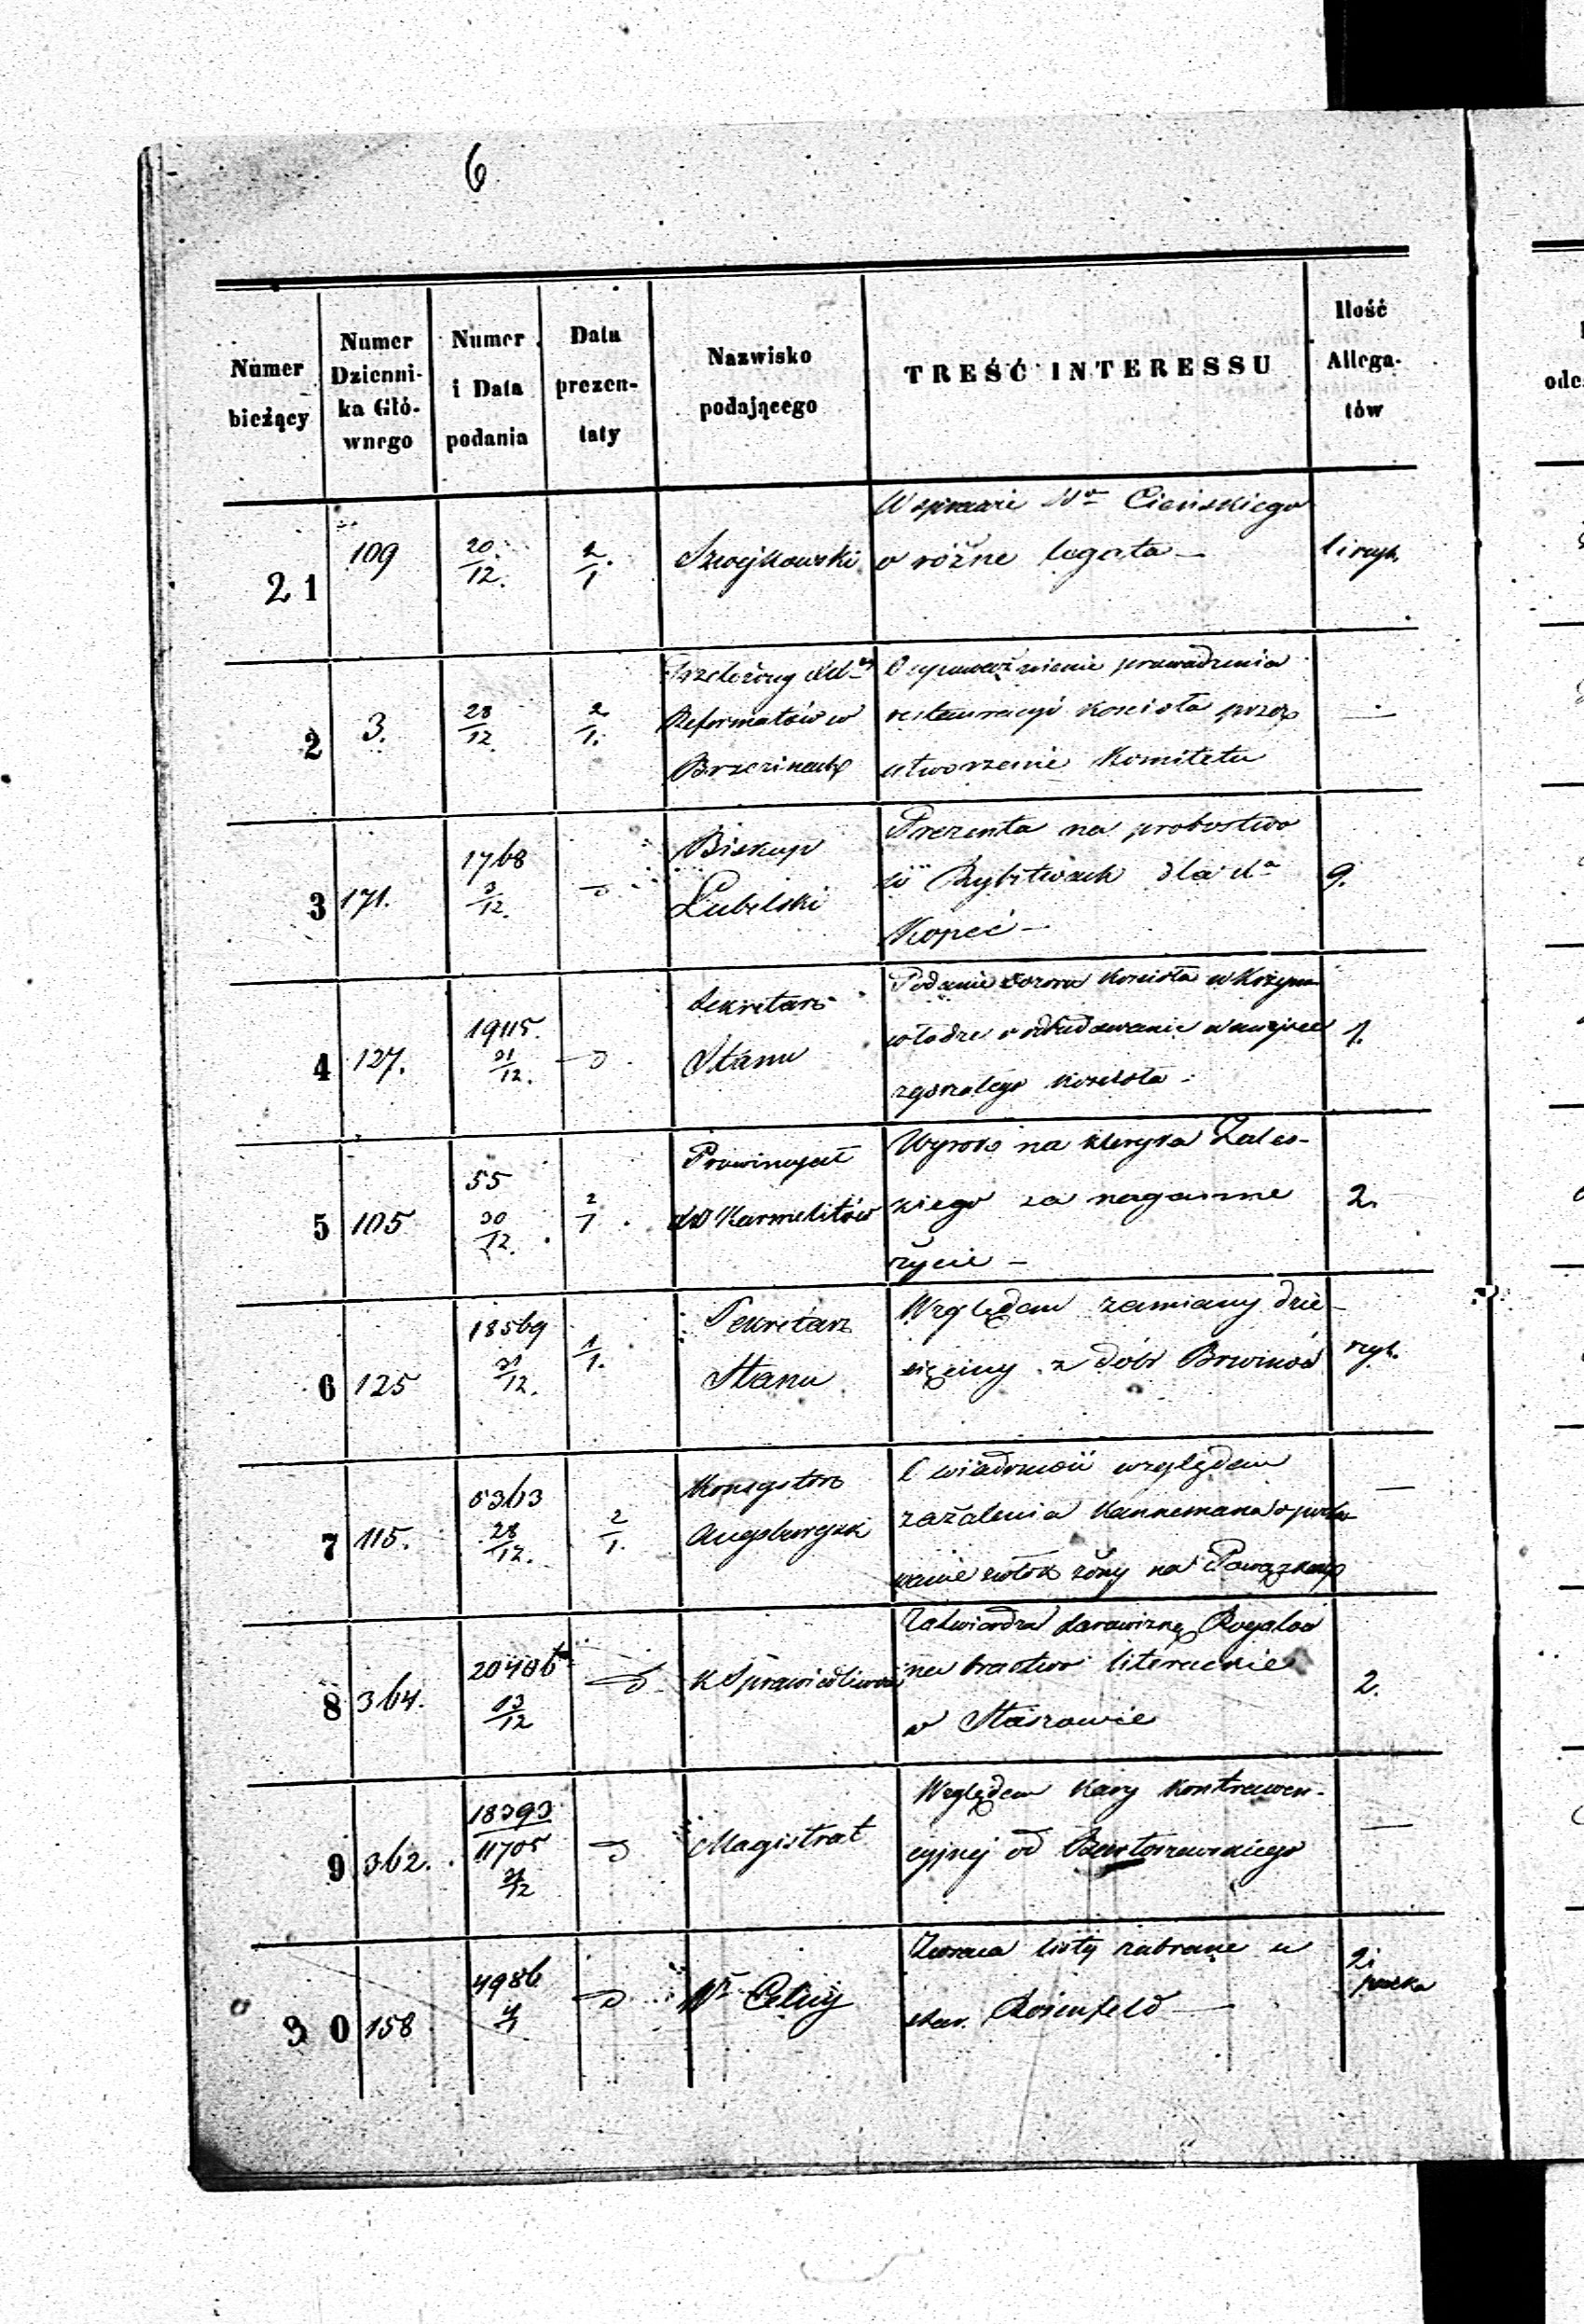 6
Numer bieżący
Numer Dzienni- ka Głó- wnego
Numer i Data podania
Data prezen- taty
Nazwisko podającego
TREŚĆ INTERESSU
Ilość Allega- tów
21
109
20/12.
2/1
Szwejkowski
W sprawie Cieńskiego
o różne legata —
2
3.
28/12
2/1.
Przełożony
Reformatów w
prowadzenia
restauracyi kościoła przez
utworzenie Komitetu
3
171.
1768
3/12.
Biskup
Lubelski
Prezenta na probostwo
w Rybitwach dla
Kopeć —
9.
4
127.
19115.
31/12.
Sekretarz
Stanu
Podanie dozoru kościoła
w miejsce
zgorzałego kościoła
1.
5
105
55
30/12.
2/1
Prowincyał
Karmelitów
Wyrok na kleryka Zales-
kiego za naganne
życie —
2.
6
125
18569
31/12.
1/1.
Sekretarz
Stanu
Względem zamiany dzie-
sięciny z dóbr Brwinów
7
115.
5363
28/12.
2/1.
Konsystorz
Augsburgski
względem
zażalenia Kannemana o
zwłok żony na Powązkach
—
8
364.
20406
13/12
K Sprawiedliwości
Zatwierdza darowiznę
na bractwo literackie
w Staszowie
2.
9
362.
18393
11705
31/12
Magistrat
Względem kary kontrawen-
cyjnej od Bartoszewskiego
—
30
158
4986
Zwraca listy zabrane u
Rosenfeld —
2 i